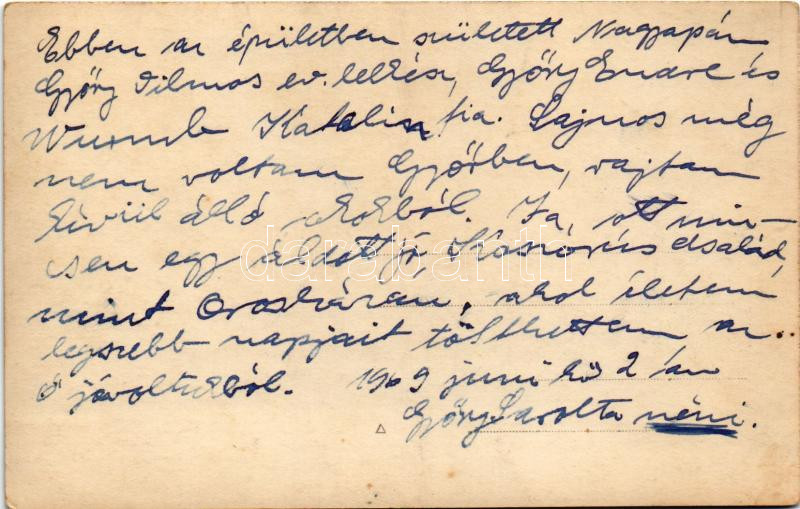 Ebben az épületben született Nagyapám
Győry Vilmos ev. lelkész, Győry Endre és
Wurmb Katalin fia. Sajnos még
nem voltam Győrben, rajtam
kívül álló okokból. Ja, ott nin-
csen egy áldott jó, Koszorús család,
mint Orosházán, ahol életem
legszebb napjait tölthettem az
ő jóvoltukból. 1969 juni hó 2 án
Győry Sarolta néni.
darabanth